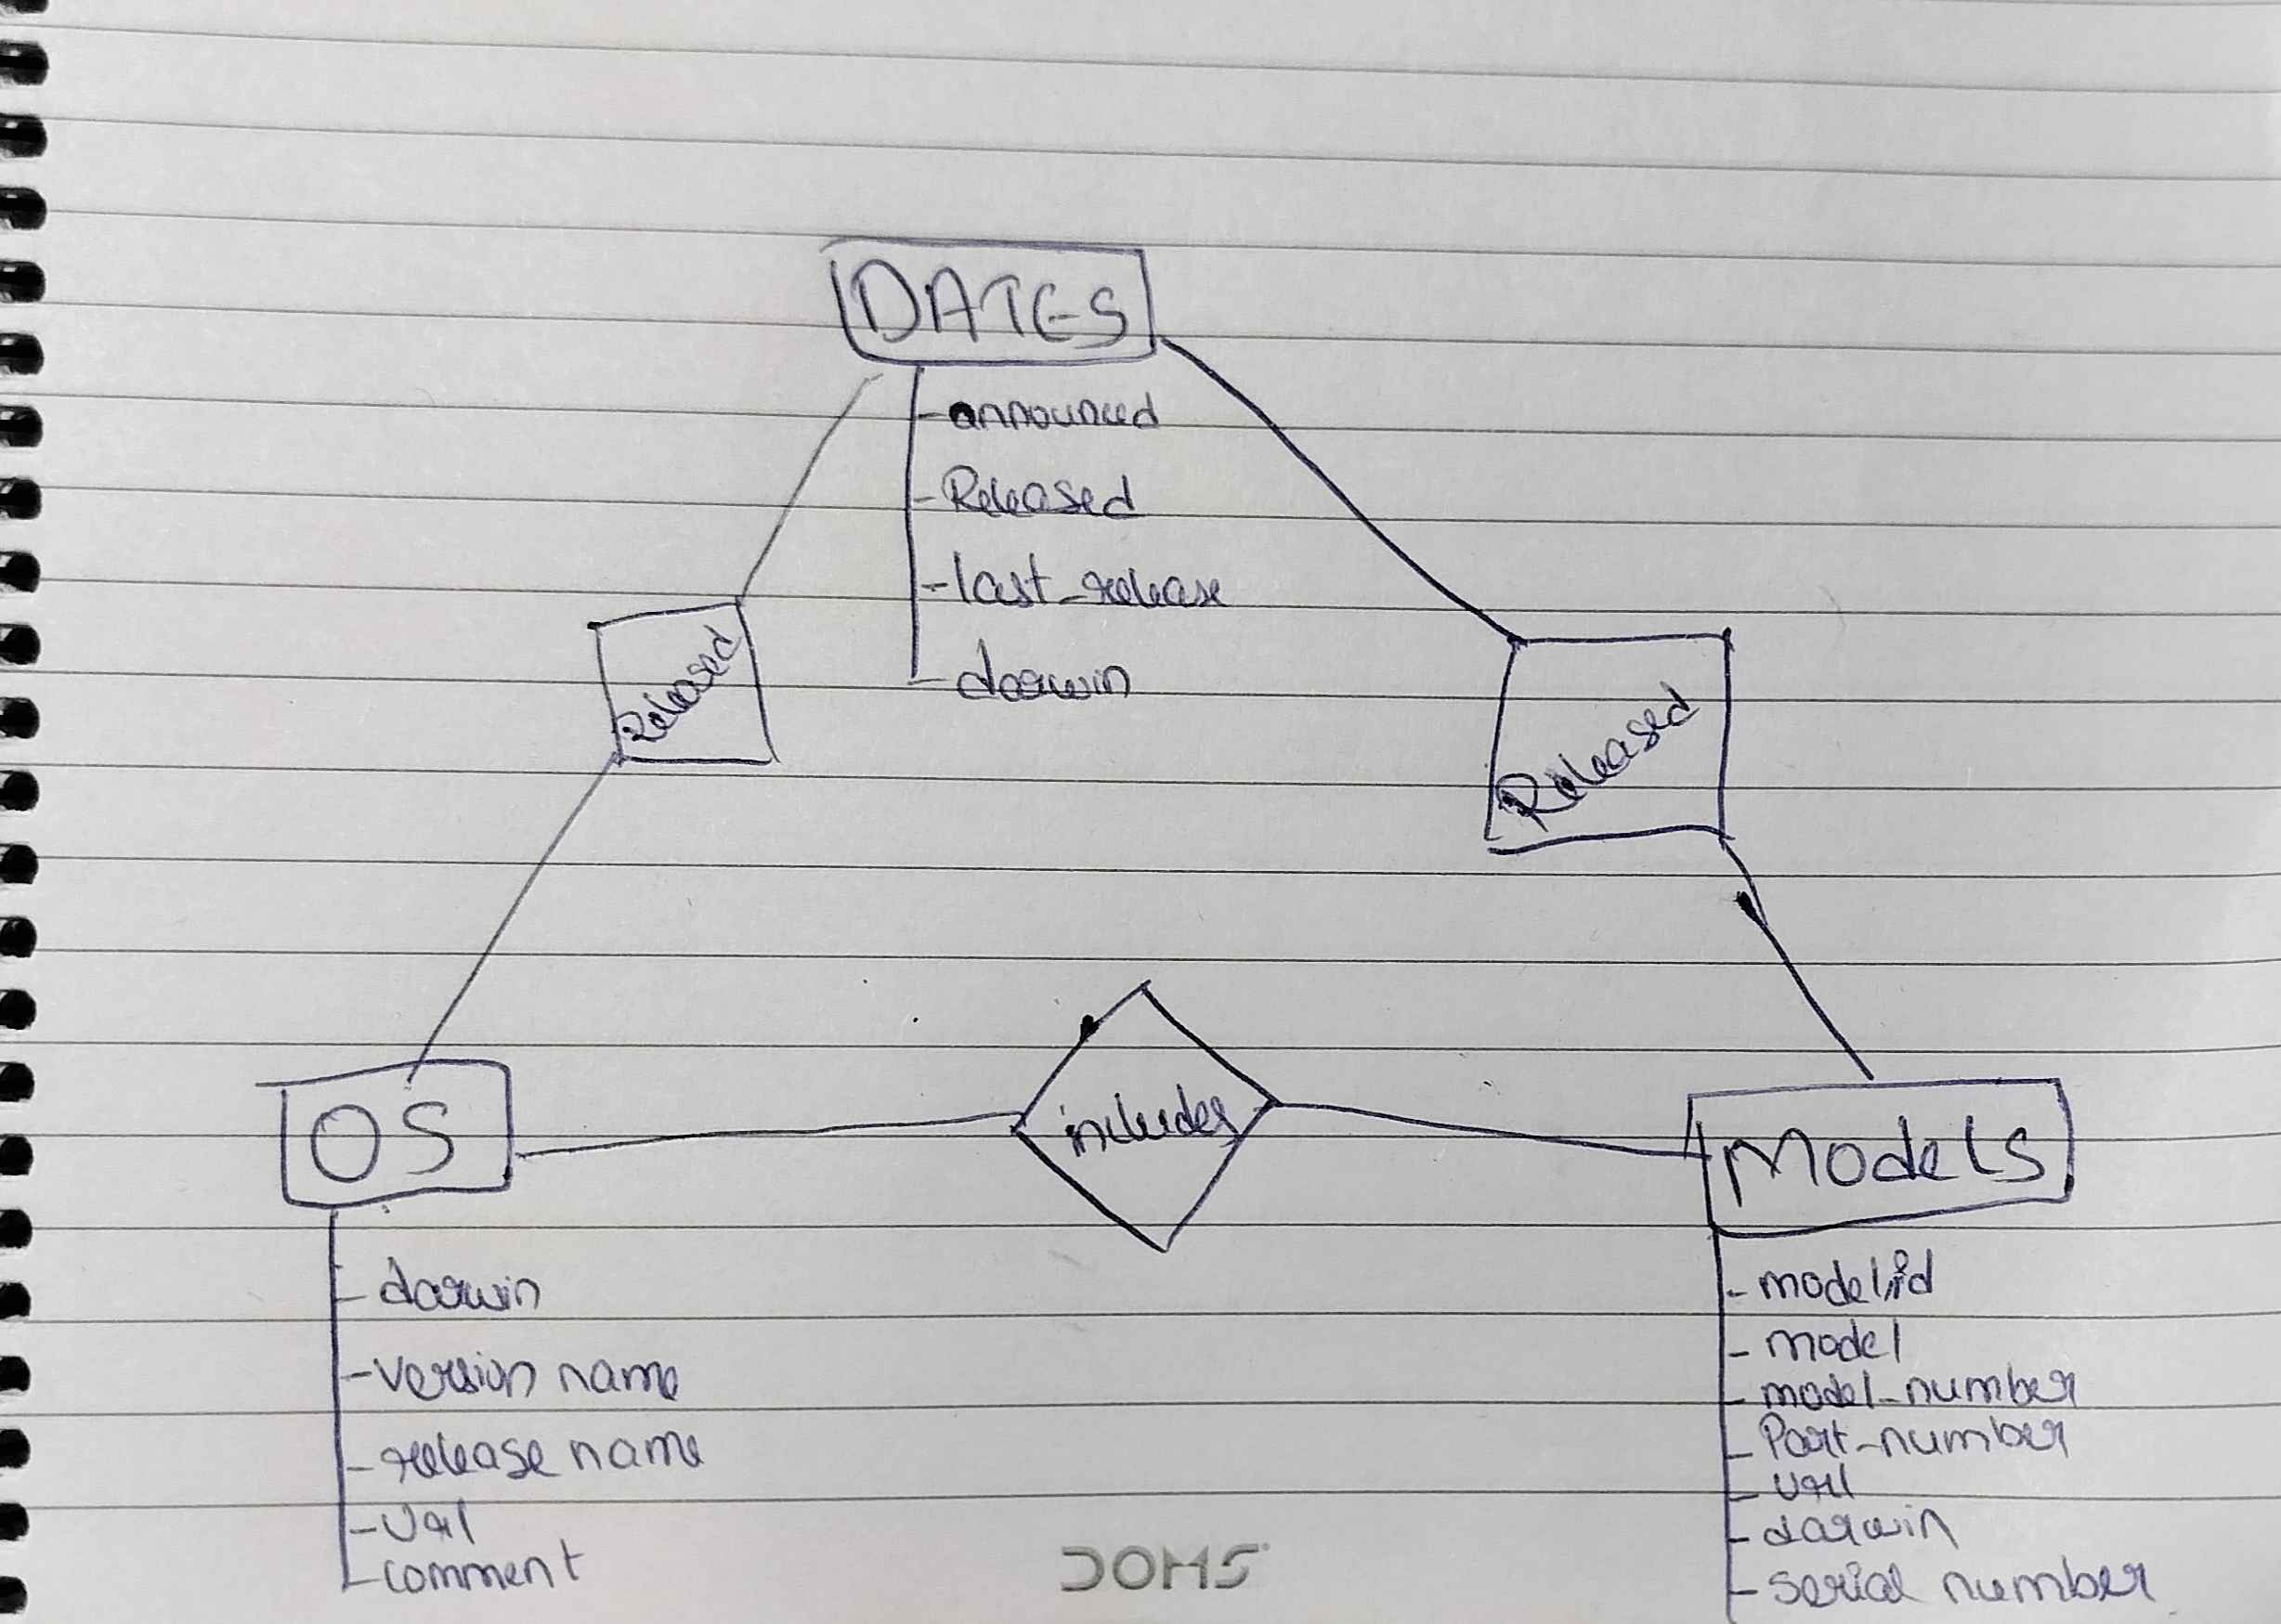 DATES
-announced
-Released
-last_release
-darwin
Released
Released
OS
includes
Models
-darwin
-version name
-release name
-url
-comment
-modelid
-model
-model_number
-Part-number
-url
-darwin
-serial number
DOMS